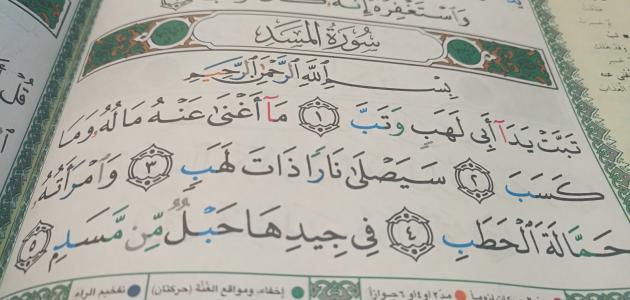 وَاسْتَغْفِرْهُ إِنَّهُ
سُورَةُ الْمَسَدِ
بِسْمِ اللَّهِ الرَّحْمَٰنِ الرَّحِيمِ
تَبَّتْ يَدَا أَبِي لَهَبٍ وَتَبَّ ١ مَا أَغْنَىٰ عَنْهُ مَالُهُ وَمَا
كَسَبَ ٢ سَيَصْلَىٰ نَارًا ذَاتَ لَهَبٍ ٣ وَامْرَأَتُهُ
حَمَّالَةَ الْحَطَبِ ٤ فِي جِيدِهَا حَبْلٌ مِّن مَّسَدٍ ٥
مدّ ٢ او ٤ او ٦ جوازاً إخفاء، ومواقع الغُنَّة (حركتان) تفخيم الراء